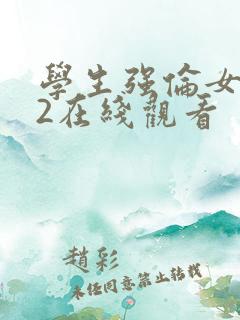 學生强倫女
2在綫觀看
趙彩
未任同意禁止转载